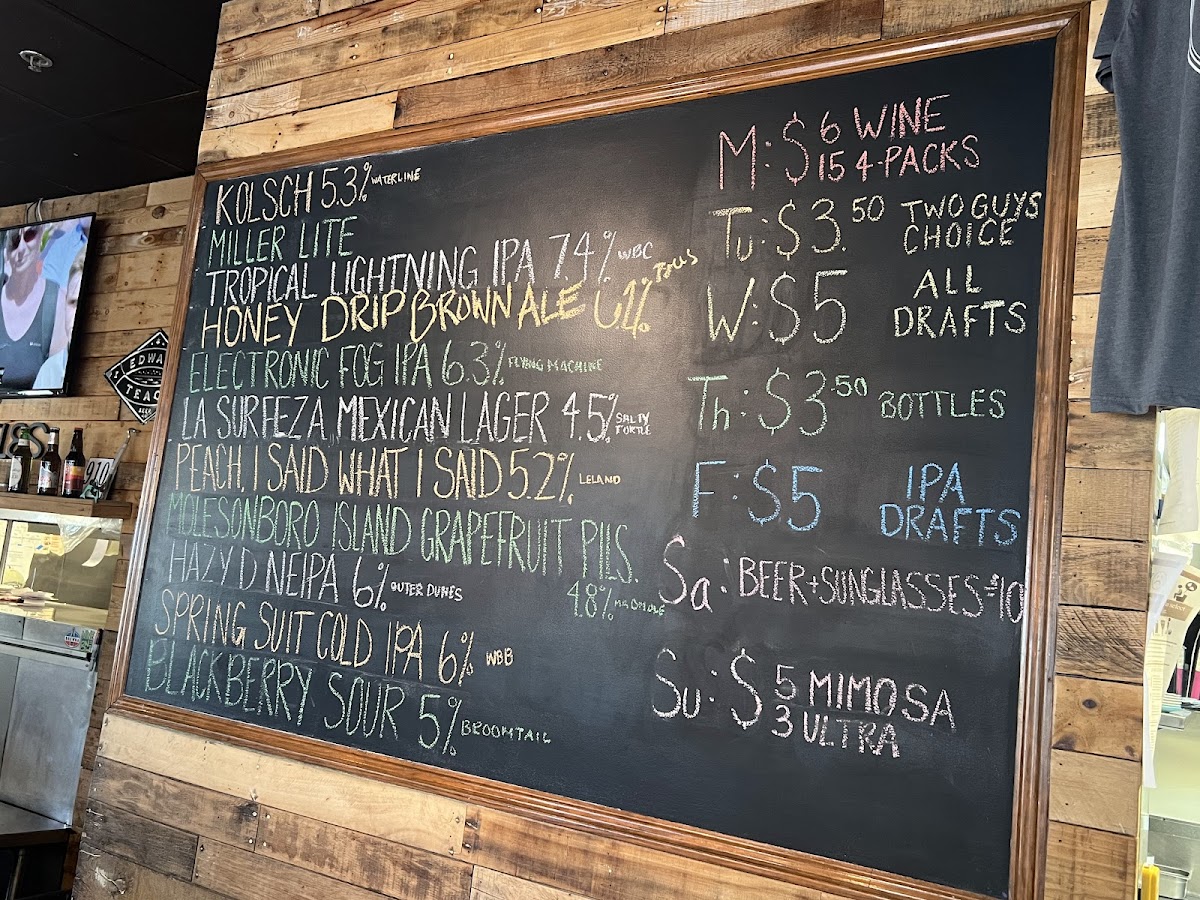 KOLSCH 5.3% WATERLINE
MILLER LITE
TROPICAL LIGHTNING IPA 7.4% WBC
HONEY DRIP BROWN ALE
ELECTRONIC FOG IPA 6.3% FLYING MACHINE
LA SURFEZA MEXICAN LAGER 4.5% SALTY TURTLE
PEACH, I SAID WHAT I SAID 5.2% LELAND
MOLESONBORO ISLAND GRAPEFRUIT PILS.
4.8% MAD MOLE
HAZY D NEIPA 6% OUTER DUNES
SPRING SUIT COLD IPA 6% WBB
BLACKBERRY SOUR 5% BROOMTAIL
M: $6 WINE
15 4-PACKS
Tu: $3.50 TWO GUYS
CHOICE
W: $5 ALL
DRAFTS
Th: $3.50 BOTTLES
F: $5 IPA
DRAFTS
Sa: BEER + SUNGLASSES = $10
Su: $5 MIMOSA
3 ULTRA
EDWA
TEAC
910